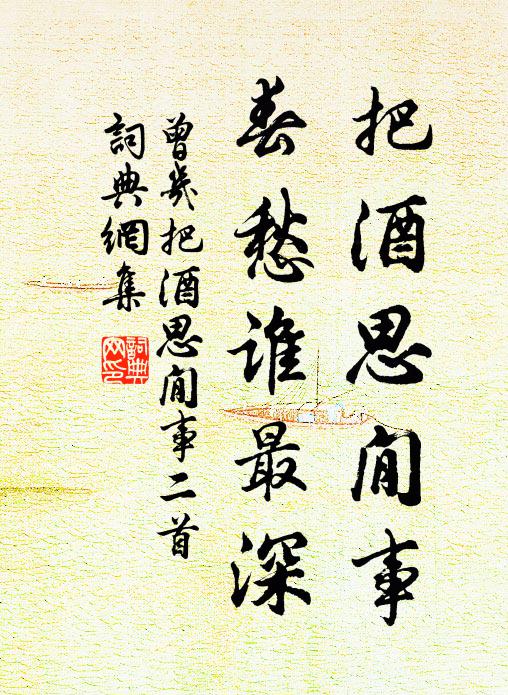 把酒思閒事
春愁誰最深
曾幾把酒思閒事二首
詞典網集
詞典网印